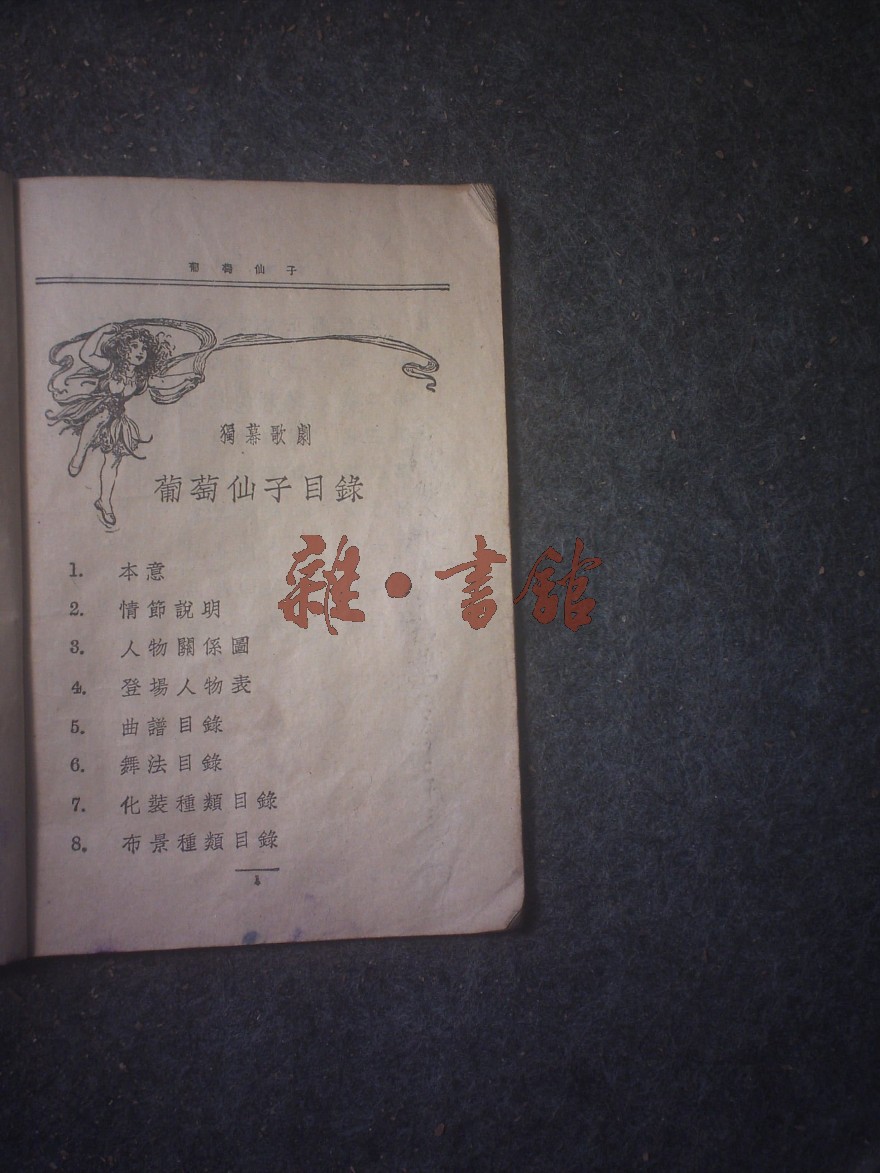 葡萄仙子
獨幕歌劇
葡萄仙子目錄
1. 本意
2. 情節說明
3. 人物關係圖
4. 登場人物表
5. 曲譜目錄
6. 舞法目錄
7. 化裝種類目錄
8. 布景種類目錄
1
雜·書館